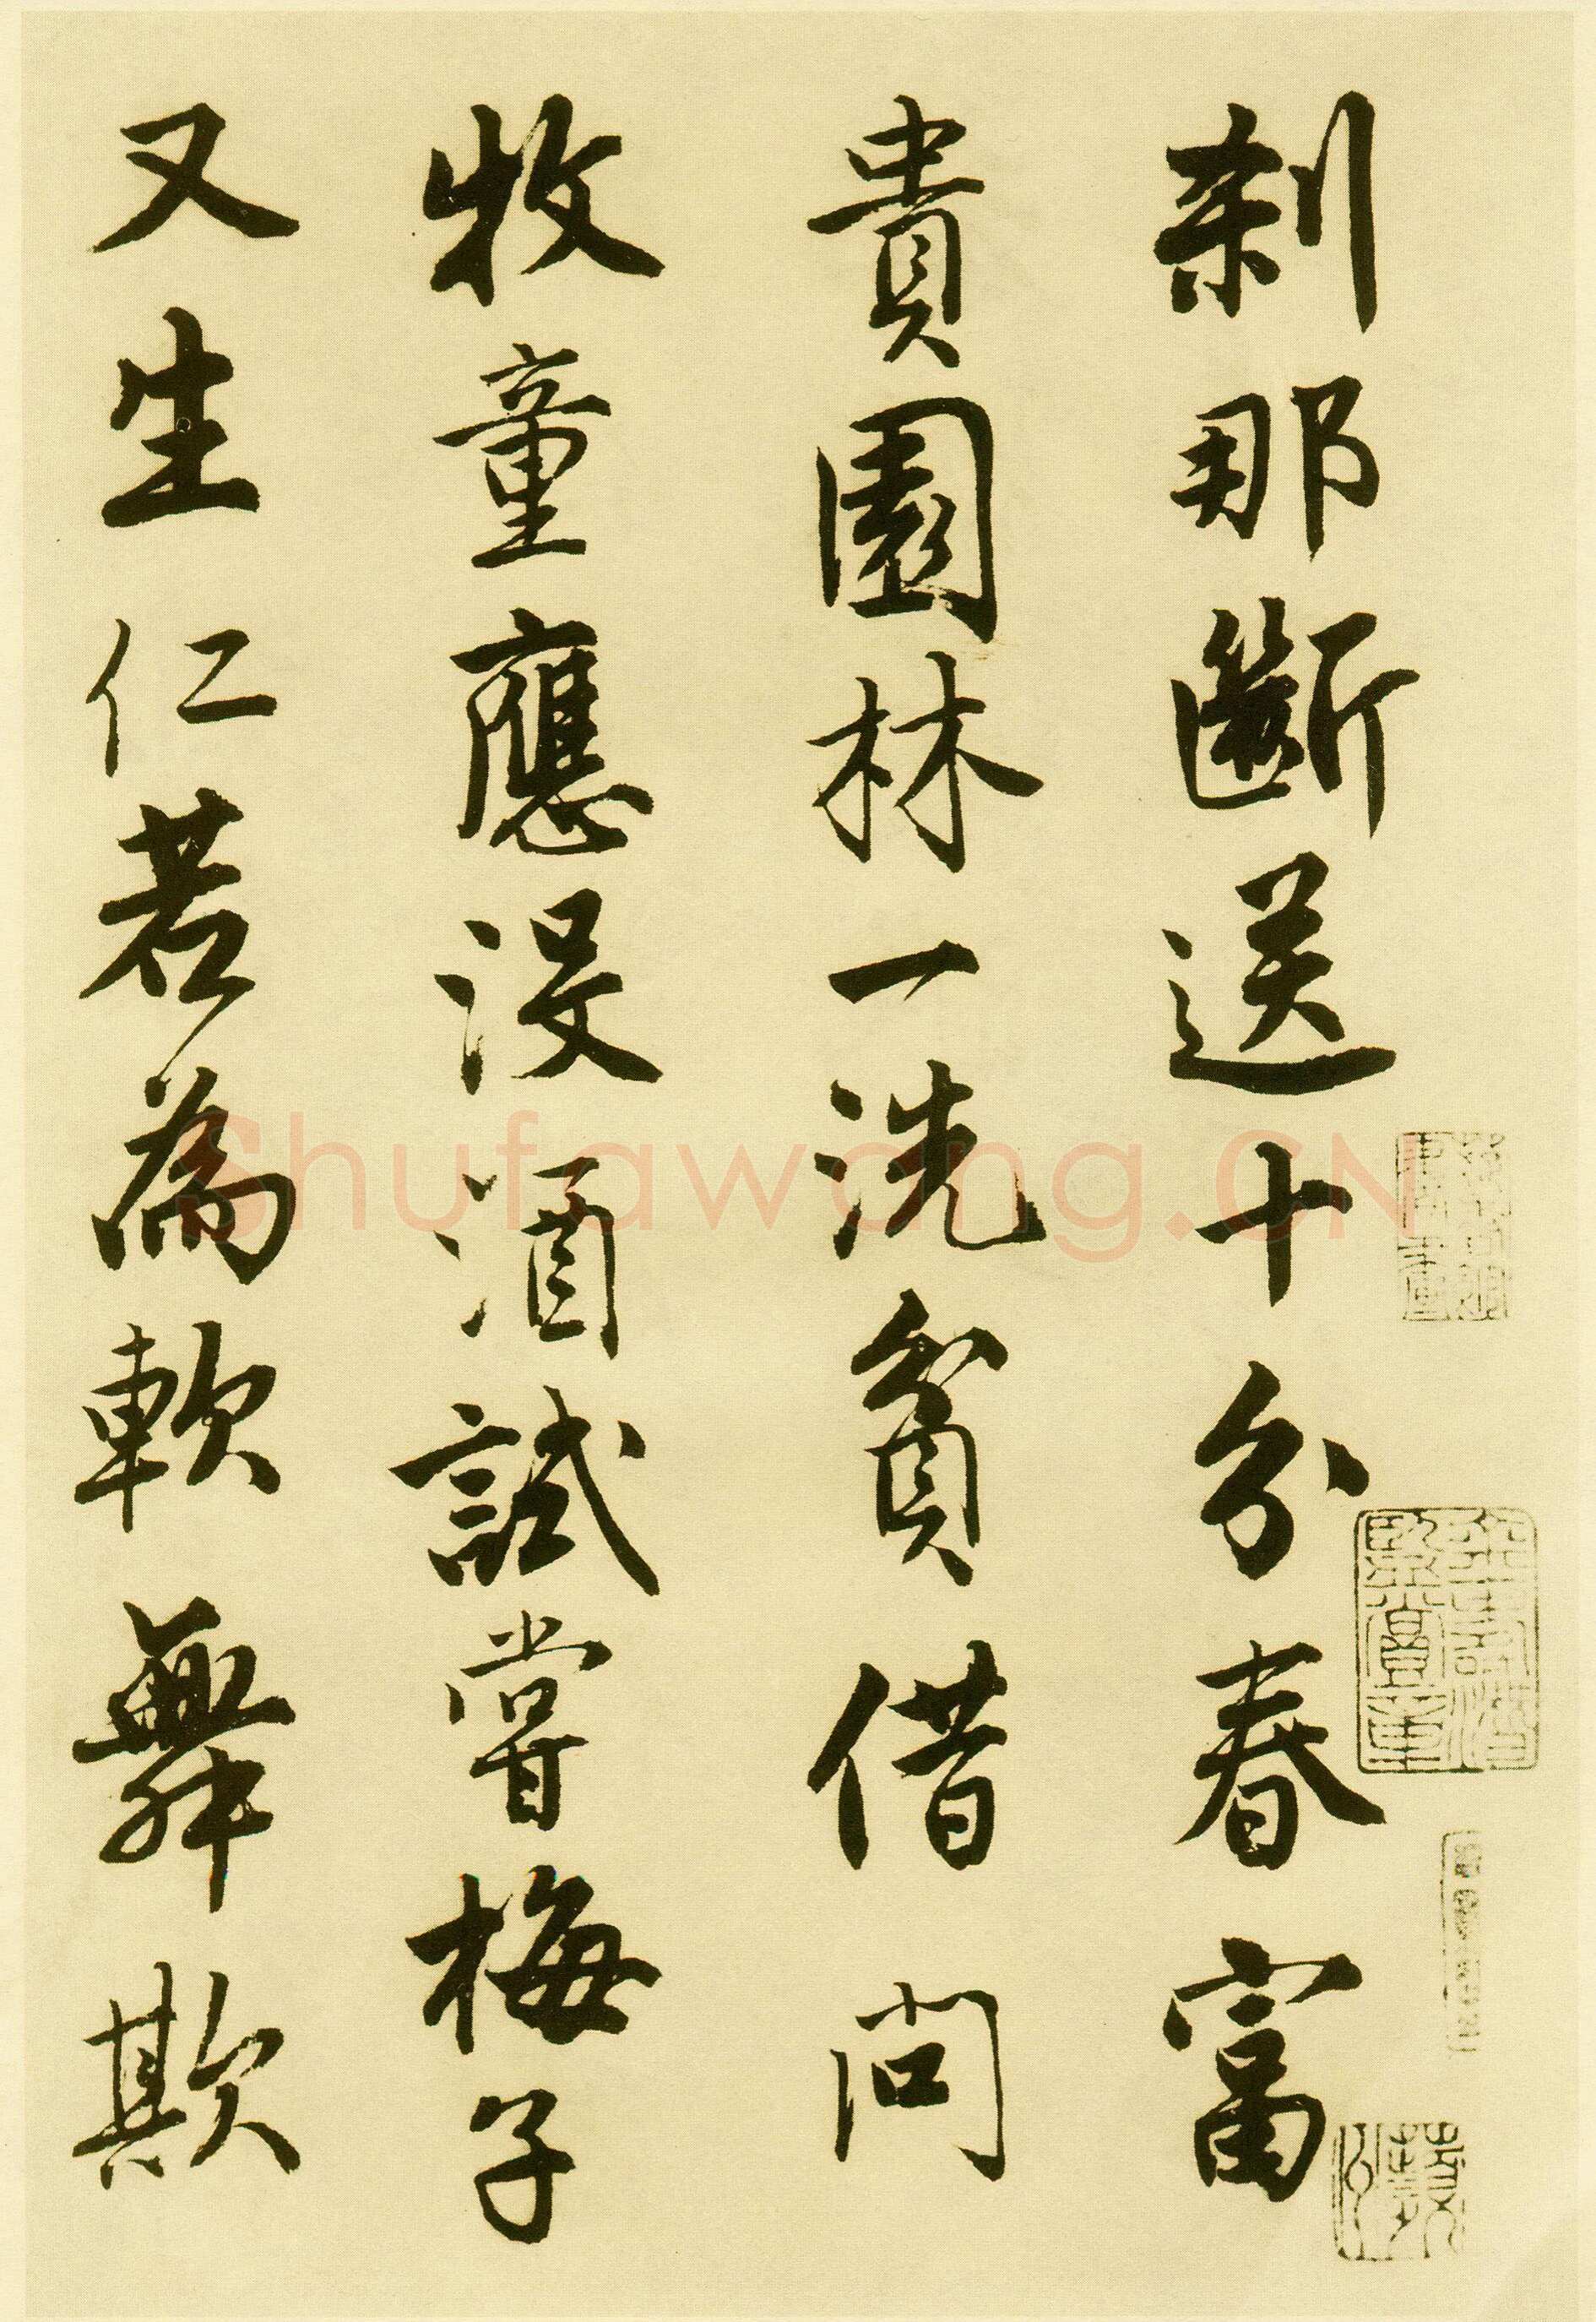 刹那斷送十分春富
貴園林一洗貧借問
牧童應沒酒試嘗梅子
又生仁若為軟舞欺
Shufawang.CN